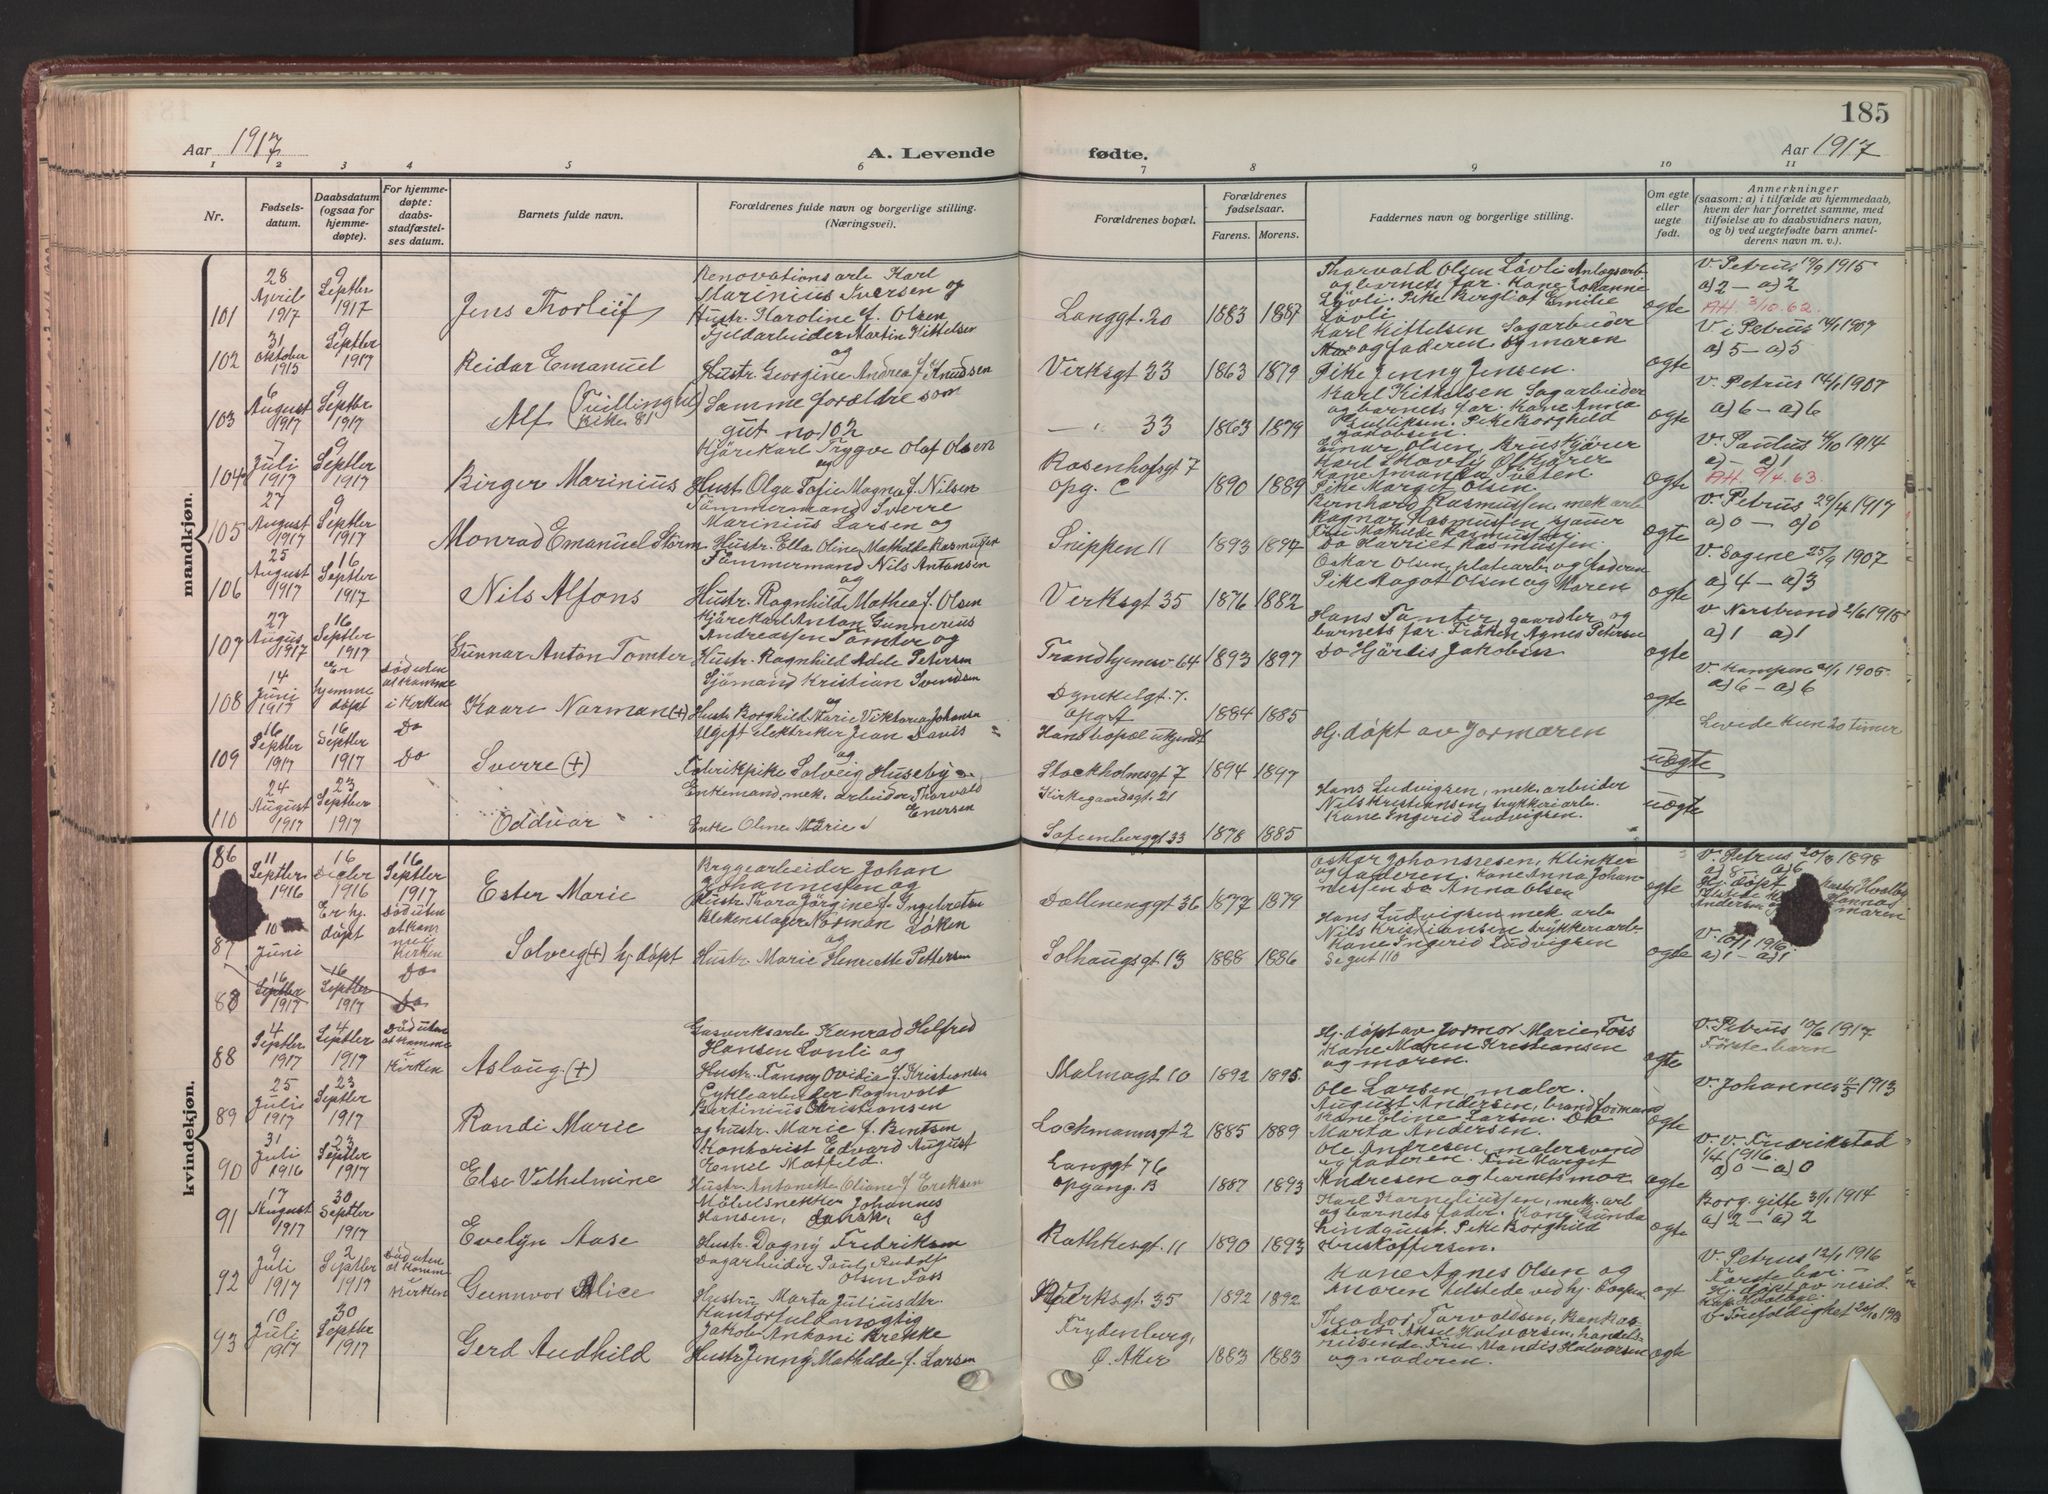 185
Aar 1917
A. Levende
fødte.
Aar 1917
1 2 3 4 5 6 7 8 9 10 11
Nr.
Fødselsdatum.
Daabsdatum (ogsaa for hjemmedøpte).
For hjemmedøpte: daabsstadfæstelses datum.
Barnets fulde navn.
Forældrenes fulde navn og borgerlige stilling.
(Næringsvei).
Forældrenes bopæl.
Forældrenes fødselsaar.
Farens. Morens.
Faddernes navn og borgerlige stilling.
Om egte eller uegte født.
Anmerkninger
(saasom: a) i tilfælde av hjemmedaab, hvem der har forrettet samme, med tilføielse av to daabsvidners navn, og b) ved uegtefødte barn anmelderens navn m. v.).
mandkjøn.
101
28 April 1917
9 Septbr 1917
Jens Thorleif
Renovationsarb Karl
Marinius Iversen og
Hustr. Karoline f. Olsen
Langgt. 20
1883 1887
Thorvald Olsen Lövli Anlægsarb.
og barnets far. Kone Johanne
Lövli. Pike Bergliot Emilie
Lövli
egte
V. Petrus 1915
a) 2 – a) 2
AH. 3/10.62.
102
31 oktober 1915
9 Septbr 1917
Reidar Emanuel
Fjeldarbeider Martin Kittelsen
og
Hustr. Georgine Andrea f. Knudsen
Verksgt 33
1863 1879
Karl Kittelsen Sagarbeider
og faderen og moren
Pike Jenny Jensen.
egte
V. i Petrus 1907
a) 5 – a) 5
103
6 August 1917
9 Septbr 1917
Alf
Samme forældre som
gut no 102
33
1863 1879
Karl Kittelsen Sagarbeider
og barnets far. Kone Anna
Gulliksen. Pike Borghild
Jakobsen.
egte
V. Petrus 14/1 1907
a) 6 – a) 6
104
7 Juli 1917
9 Septbr 1917
Birger Marinius
Kjörekarl Trygve Olaf Olsen
og
Hust. Olga Tofie Magna f. Nilsen
Rosenhofsgt 7
opg. C
1890 1889
Einar Olsen, Bruskjörer
Karl Skovly Ölkjörer
Kone Amanda Tveten
Pike Marget Olsen.
egte
V. Paulus 1914
AH. 9/4.63.
105
27 August 1917
9 Septbr 1917
Monrad Emanuel Storm
Tömmermand Sverre
Marinius Larsen og
Hustr. Ella Oline Mathilde Rasmussen
Snippen 11
1893 1894
Bernhard Rasmussen, mek arb
Ragnar Rasmussen,
Fru Mathilde Rasmussen
Do Harriet Rasmussen.
egte
V. Petrus 29/4 1917
a) 0 – a) 0
106
25 August 1917
16 Septbr 1917
Nils Alfons
Tömmermand Nils Antonsen
og
Hustr. Ragnhild Mathea f. Olsen
Verksgt 35
1876 1882
Oskar Olsen, platearb. og faderen
Pike Ragot Olsen og Moren
egte
V. Sagene 25/9 1907
a) 4 – a) 3
107
27 Augus 1917
16 Septbr 1917
Gunnar Anton Tomter
Kjörekarl Anton Gunnerius
Andreassen Tomter og
Hustr. Ragnhild Adele Petersen
Trondhjemsv. 64
1893 1897
Hans Tomter, gaardbr og
barnets far. Fröken Agnes Petersen
Do Hjördis Jakobsen
egte
V. Norstrand 2/6 1915
a) 1 a) 1
108
14 Juni 1917
Er hjemme döpt
Död uten at komme i kirken
Kaare Norman (+)
Sjömand Kristian Svendsen
og
Hustr Borghild Marie Viktoria Johansen
Dynekilgt. 7.
opg
1884 1885
egte
V. Kampen 21/1 1905
a) 6 – a) 6
109
16 Septbr 1917
16 Septbr 1917
Do
Do
Sverre (+)
Ugift elektriker Jean Davis
og
Fabrikpike Solveig Huseby
Hans bopæl ukjendt
Stockholmsgt 7
1894 1897
Hj. döpt av Jormoren
uegte
Levede kun 20 timer
110
24 August 1917
23 Septber 1917
Oddvar
Enkemand, mek. arbeider Thorvald
Enersen
Enke Oline Marie
Kirkegaardsgt. 21
Sofienberggt 33
1878 1885
Hans Ludvigsen, mek. arbeider
Nils Kristiansen, trykkeriarb.
Kone Ingerid Ludvigsen.
uegte
kvindekjøn.
86
11 Septbr 1916
16 1916
16 Septbr 1917
Ester Marie
Bryggearbeider Johan
Johannessen og
Hustr. Thora Jörgine f. Ingebretsen
Dælenenggt 36
1877 1879
Oskar Johannesen, Klinker
og faderen. Kone Anna Johannessen
Do Anna Olsen
egte
V. Petrus 20/3 1898
a) 8 – a) 6
Hj. döpt
Andersen og
moren
87
10 Juni
Er hj. döpt
Död uten at komme i kirken
Solveig (+) hj döpt
Blikkenslager Norman Löken
og
Hustr. Marie Henriette Pettersen
Solhaugsgt 13
1888 1886
Hans Ludvigsen mek arb
Nils Kristiansen trykkeriarb.
Kone Ingerid Ludvigsen
Se gut 110
egte
V. 10/1 1916.
a) 1 – a) 1
88
16 Septber 1917
16 Septbr 1917
Do
Do
88
4 Septbr 1917
4 Septbr 1917
Död uten at komme i kirken
Aslaug (+)
Gasverksarb Konrad Helfred
Hansen Lonli og
Hustr. Fanny Ovidia f. Kristiansen
Malmøgt 10
1892 1895.
Hj. döpt av Jormor Marie Foss
Kone Maren Kristiansen
og moren.
egte
V. Petrus 1917
Förste barn
89
25 Juli 1917
23 Septbr 1917
Randi Marie
Cyklearbeider Ragnvald
Bertinius Christiansen
og hustr. Marie f. Bentsen
Lochmannsgt 2
1885 1889
Ole Larsen, maler.
August Andersen, brandformand
Kone Eline Larsen. Do
Marta Andersen.
egte
V. Johannes 1913
90
31 Juli 1916
23 Septbr 1917
Else Vilhelmine
Kontorist Edvard August
Emil Matfeld.
Hustr Antonette Oliane f. Eriksen
Langgt 76
opgang. B
1887 1893
Ole Andresen, malersvend
og faderen. Fru Margit
Andresen og barnets mor
egte
V. V. Fredrikstad
1/4 1916.
a) 0 – a) 0
91
17 August 1917
30 Septbr 1917
Evelyn Aase
Möbelsnekker Johannes
Hansen, dansk, og
Hustr. Dagny Fredriksen
Rathkesgt. 11
1890 1893
Karl Kornelius­sen, mek. arb
og barnets fader. Kone Gunda
Lindquist. Pike Borghild
Kristoffersen.
egte
Borg. gifte 3/1 1914
a) 2 – a) 2
92
9 Juli 1917
2 Septbr 1917
Död uten at komme i kirken
Gunnvor Alice
Dagarbeider Paul Rudolf
Olsen Foss
Hustru Marta Juliusdtr.
Verksgt. 35
1892 1892
Kone Agnes Olsen og
Moren tilstede ved hj. daapen
egt
V. Petrus 12/1 1916
Förste bar
Hj. döpt av resid.
93
10 Juli 1917
30 Septbr 1917
Gerd Audhild
Kontorfuldmægtig
Jakob Antoni Brekke
Hustr Jenny Mathilde f. Larsen
Frydenberg,
Ö. Aker
1883 1883
Theodor Torvaldsen,
Aksel Halvorsen, handelsreisende.
Fru Mandis Halvorsen
og moderen.
egte
V. Trefoldighet